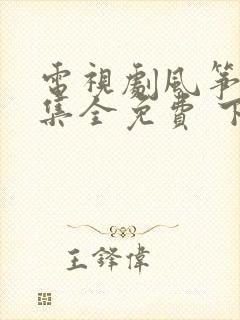 電視劇風箏
集全免費 下
王鋒偉